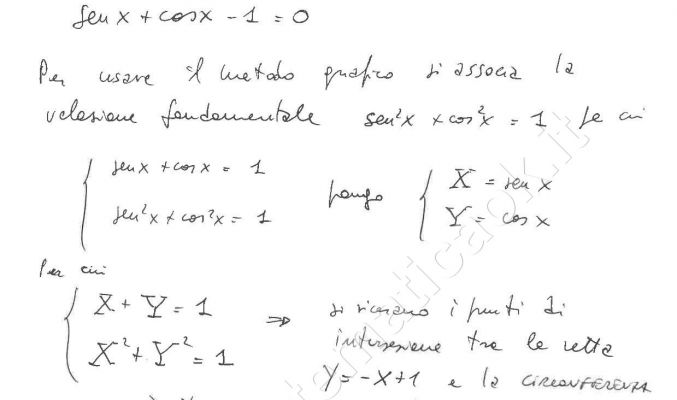 sen x + cos x - 1 = 0
Per usare il metodo grafico si associa la
relazione fondamentale sen²x + cos²x = 1 per cui
{ sen x + cos x = 1
sen²x + cos²x = 1
pongo { X = sen x
Y = cos x
Per cui
{ X + Y = 1
X² + Y² = 1
⇒ si ricavano i punti di
intersezione tra la retta
Y = -X + 1 e la CIRCONFERENZA
tematicaok.it